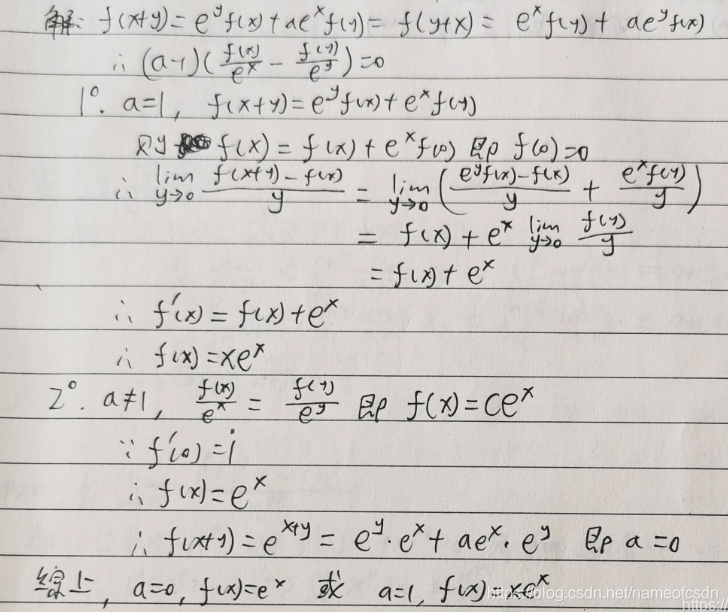 解: f(x+y)= e^y f(x)+ae^x f(y)= f(y+x)= e^x f(y)+ ae^y f(x)
∴ (a-1)(f(x)/e^x - f(y)/e^y)=0
1°. a=1, f(x+y)=e^y f(x)+e^x f(y)
则 f(x)=f(x)+e^x f(0) 即 f(0)=0
∴ lim y→0 (f(x+y)-f(x))/y = lim y→0 ((e^y f(x)-f(x))/y + e^x f(y)/y)
= f(x)+e^x lim y→0 f(y)/y
= f(x)+e^x
∴ f'(x)=f(x)+e^x
∴ f(x)=xe^x
2°. a≠1, f(x)/e^x = f(y)/e^y 即 f(x)=Ce^x
∵ f'(0)=1
∴ f(x)=e^x
∴ f(x+y)=e^{x+y}=e^y·e^x+ae^x·e^y 即 a=0
综上, a=0, f(x)=e^x 或 a=1, f(x)=xe^x
https://blog.csdn.net/nameofcsdn
https://